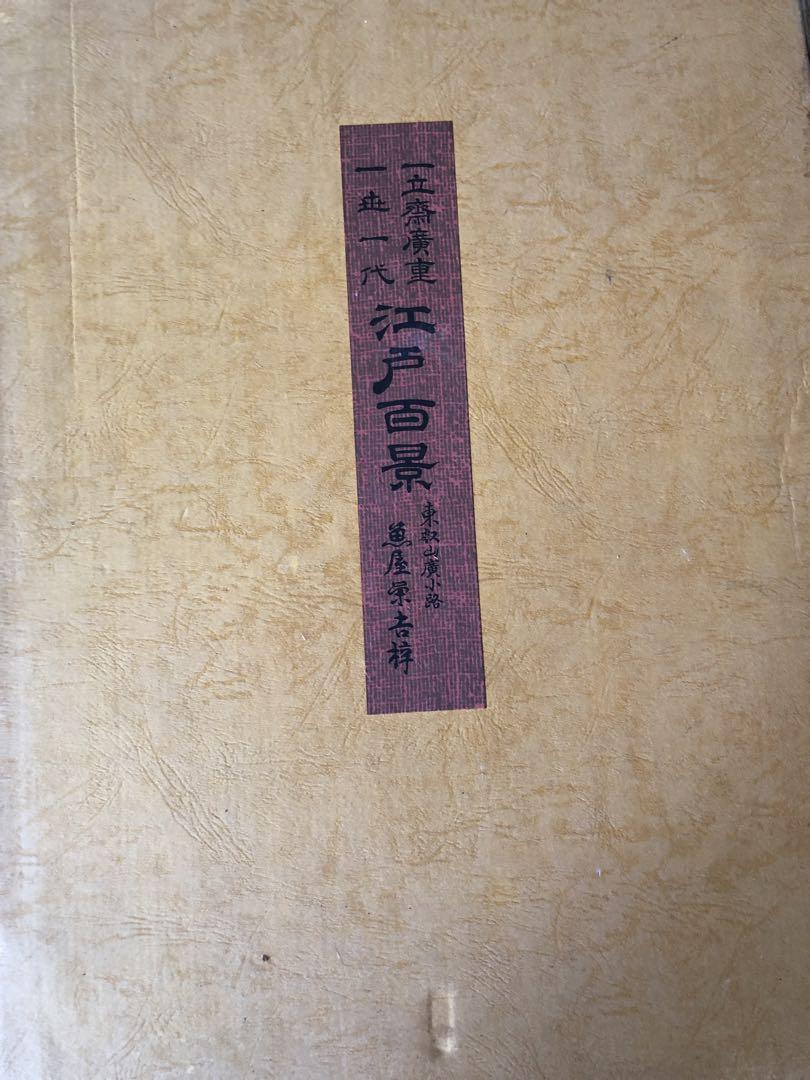 一立齋廣重
一世一代
江戸百景
東叡山廣小路
魚屋榮吉梓